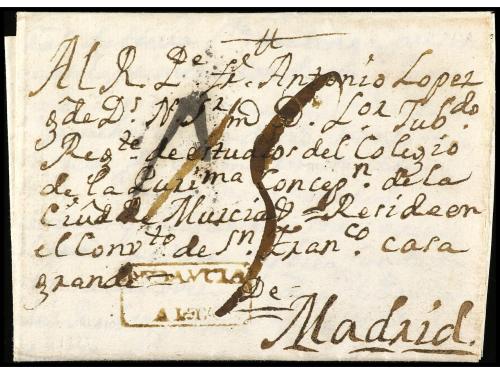 Al R. Pe. fr. Antonio Lopez
gde Ds. Nr Sr m D. Lor Tubdo
Regte de estudios del Colegio
de la Purima Concepn. de la
Ciud de Murcia = Reside en
el Convto de Sn. Franco casa
grande
De
Madrid.